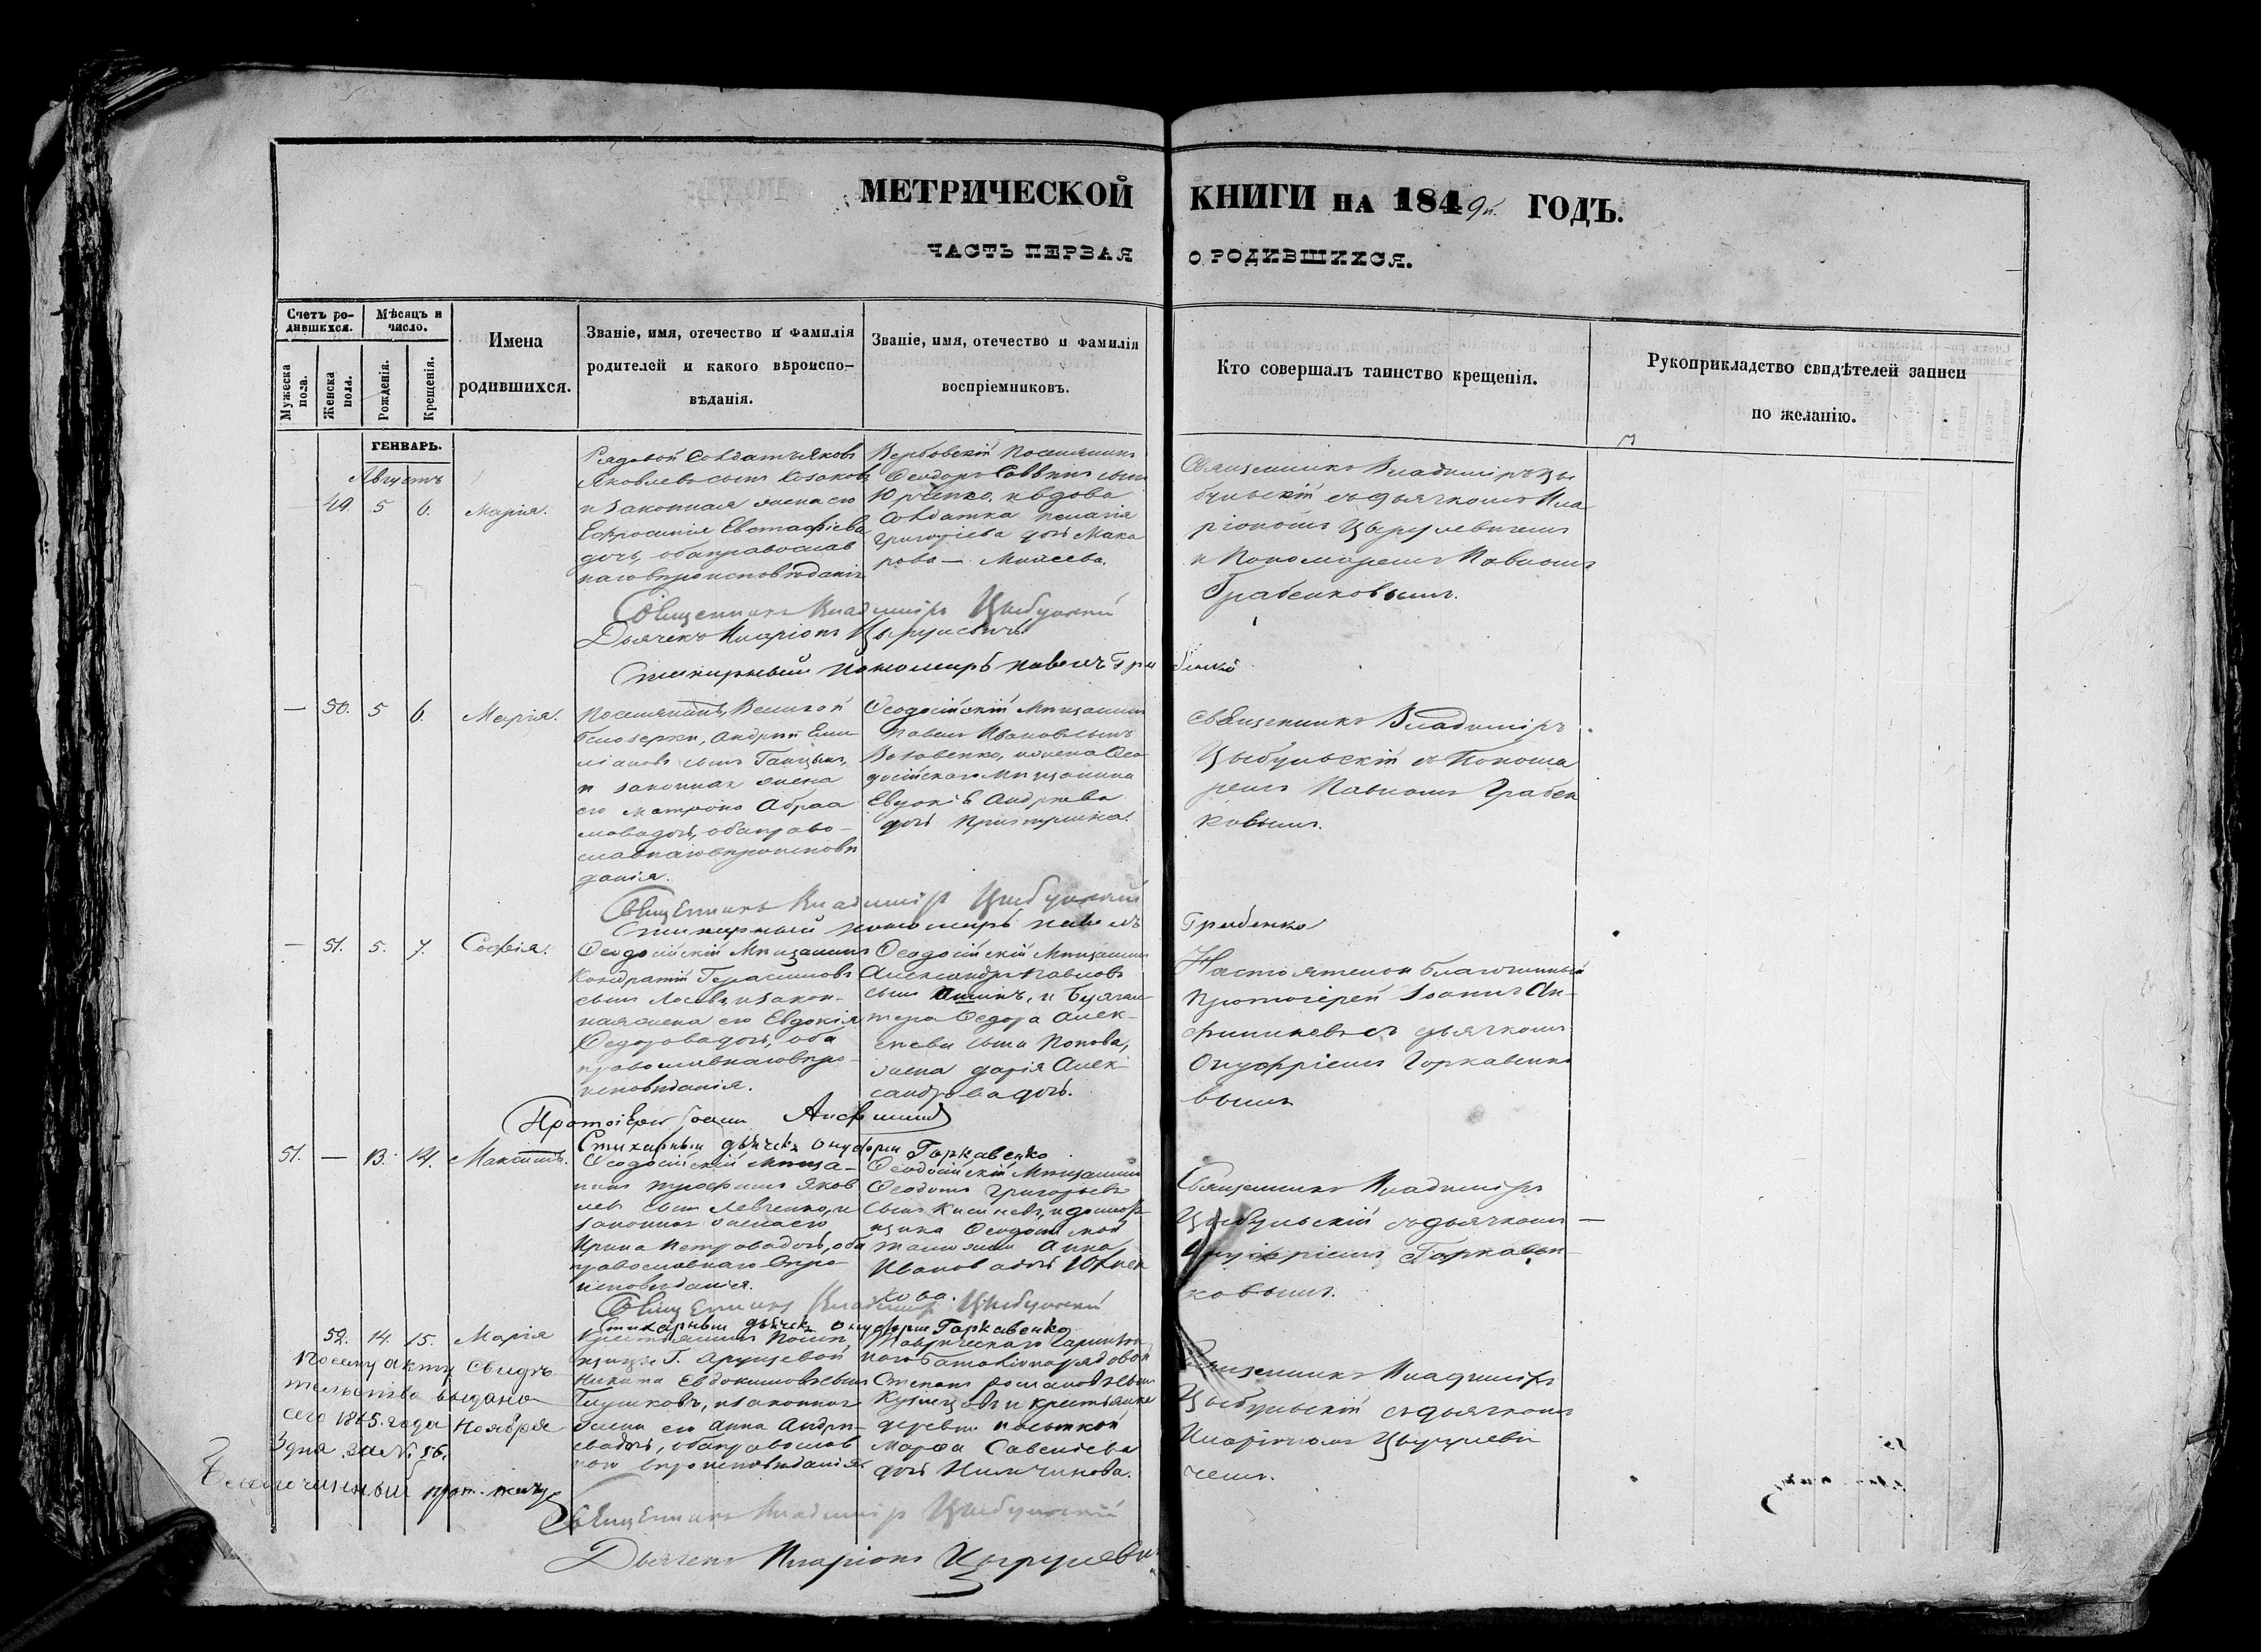 МЕТРИЧЕСКОЙ КНИГИ НА 1849й. ГОДЪ.
ЧАСТЬ ПЕРВАЯ О РОДИВШИХСЯ.
Счетъ ро-
дившихся.
Мужеска
пола.
Женска
пола.
Мѣсяцъ и
число.
Рожденія.
Крещенія.
Имена
родившихся.
Званіе, имя, отечество и фамилія
родителей и какого вѣроиспо-
вѣданія.
Званіе, имя, отечество и фамилія
воспріемниковъ.
Кто совершалъ таинство крещенія.
Рукоприкладство свидѣтелей записи
по желанію.
ГЕНВАРЬ.
Августъ
49. 5 6. Марія.
Рядовой Солдатъ Яковъ
Яковлевъ сынъ Козаковъ
и законная жена его
Ефросинія Евстафіева
дочь, оба православ
наго вѣроисповѣданія
Вербовскій Поселянинъ
Ѳеодоръ Саввинъ сынъ
Юрченко, и вдова
Солдатка Пелагія
Григоріева дочь Мака
рова — Моисеева.
Священникъ Владиміръ Цы
бульскій съ дьячкомъ Ила
ріономъ Цырулевичемъ
и Пономаремъ Павломъ
Грабенковымъ.
Священникъ Владиміръ Цибульскій
Дьячекъ Иларіонъ Цырулевичъ
Стихирный пономаръ Павелъ
— 50. 5 6. Марія.
Поселянинъ, Великой
Белозерки, Андрей Еми
ліановъ сынъ
и законная жена
его Матрона Абраа
мова дочь, оба право-
славнаго вѣроисповѣ
данія.
Ѳеодосійскій Мѣщанинъ
Павелъ Ивановъ сынъ
и жена Ѳео
досійскаго Мѣщанина
Евдокія Андреева
дочь
Священникъ Владиміръ
Цыбульскій съ Понома
ремъ Павломъ Грабен
ковымъ.
Священникъ Владиміръ Цибульскій
Стихирный пономаръ Павелъ Грибенко
— 51. 5. 7. Софія.
Ѳеодосійскій Мѣщанинъ
Кондратій Герасимовъ
сынъ и закон-
ная жена его Евдокія
Ѳедорова дочь, оба
православнаго вѣро-
исповѣданія.
Ѳеодосійскій Мѣщанинъ
Александръ Павловъ
сынъ и Бухгал-
тера Ѳедора Алек-
сѣева сына Попова,
жена Дарія Алек-
сандрова дочь.
Настоятель Благочинный
Протоіерей Іоаннъ Ан-
съ дьячкомъ
Онуфріемъ Горкавенко
вымъ
Протоіерей Іоаннъ
Стихарный дьячекъ Онуфрій Горкавенко
51. — 13. 14. Максимъ.
Ѳеодосійскій Мѣща-
нинъ Трофимъ Яков
левъ сынъ Левченко, и
законная жена его
Ирина Петрова дочь, оба
православнаго вѣро-
исповѣданія.
Ѳеодосійскій Мѣщанинъ
Ѳеодотъ Григорьевъ
сынъ
Анна
Иванова дочь
кова.
Священникъ Владиміръ
Цыбульскій съ дьячкомъ —
Онуфріемъ Горкавен-
ковымъ.
Священникъ Владиміръ Цибульскій
Стихарный дьячекъ Онуфрій Горкавенко
52. 14. 15. Марія
Крестьянинъ
Никита Евдокимовъ сынъ
Глушковъ, и законная
жена его Анна Андре
ева дочь, оба православ
наго вѣроисповѣданія
Таврическаго Гарнизон
наго Баталіона рядовой
Степанъ Романовъ сынъ
Кузнецовъ и крестьянка
деревни
Марѳа Савельева
дочь
Священникъ Владиміръ
Цыбульскій съ дьячкомъ
Иларіономъ Цырулеви
чемъ.
По сему акту свидѣ
тельство выдано
сего 1865. года Ноября
3 дня. за № 56.
Благочинный
Священникъ Владиміръ Цибульскій
Дьячекъ Иларіонъ Цырулевич